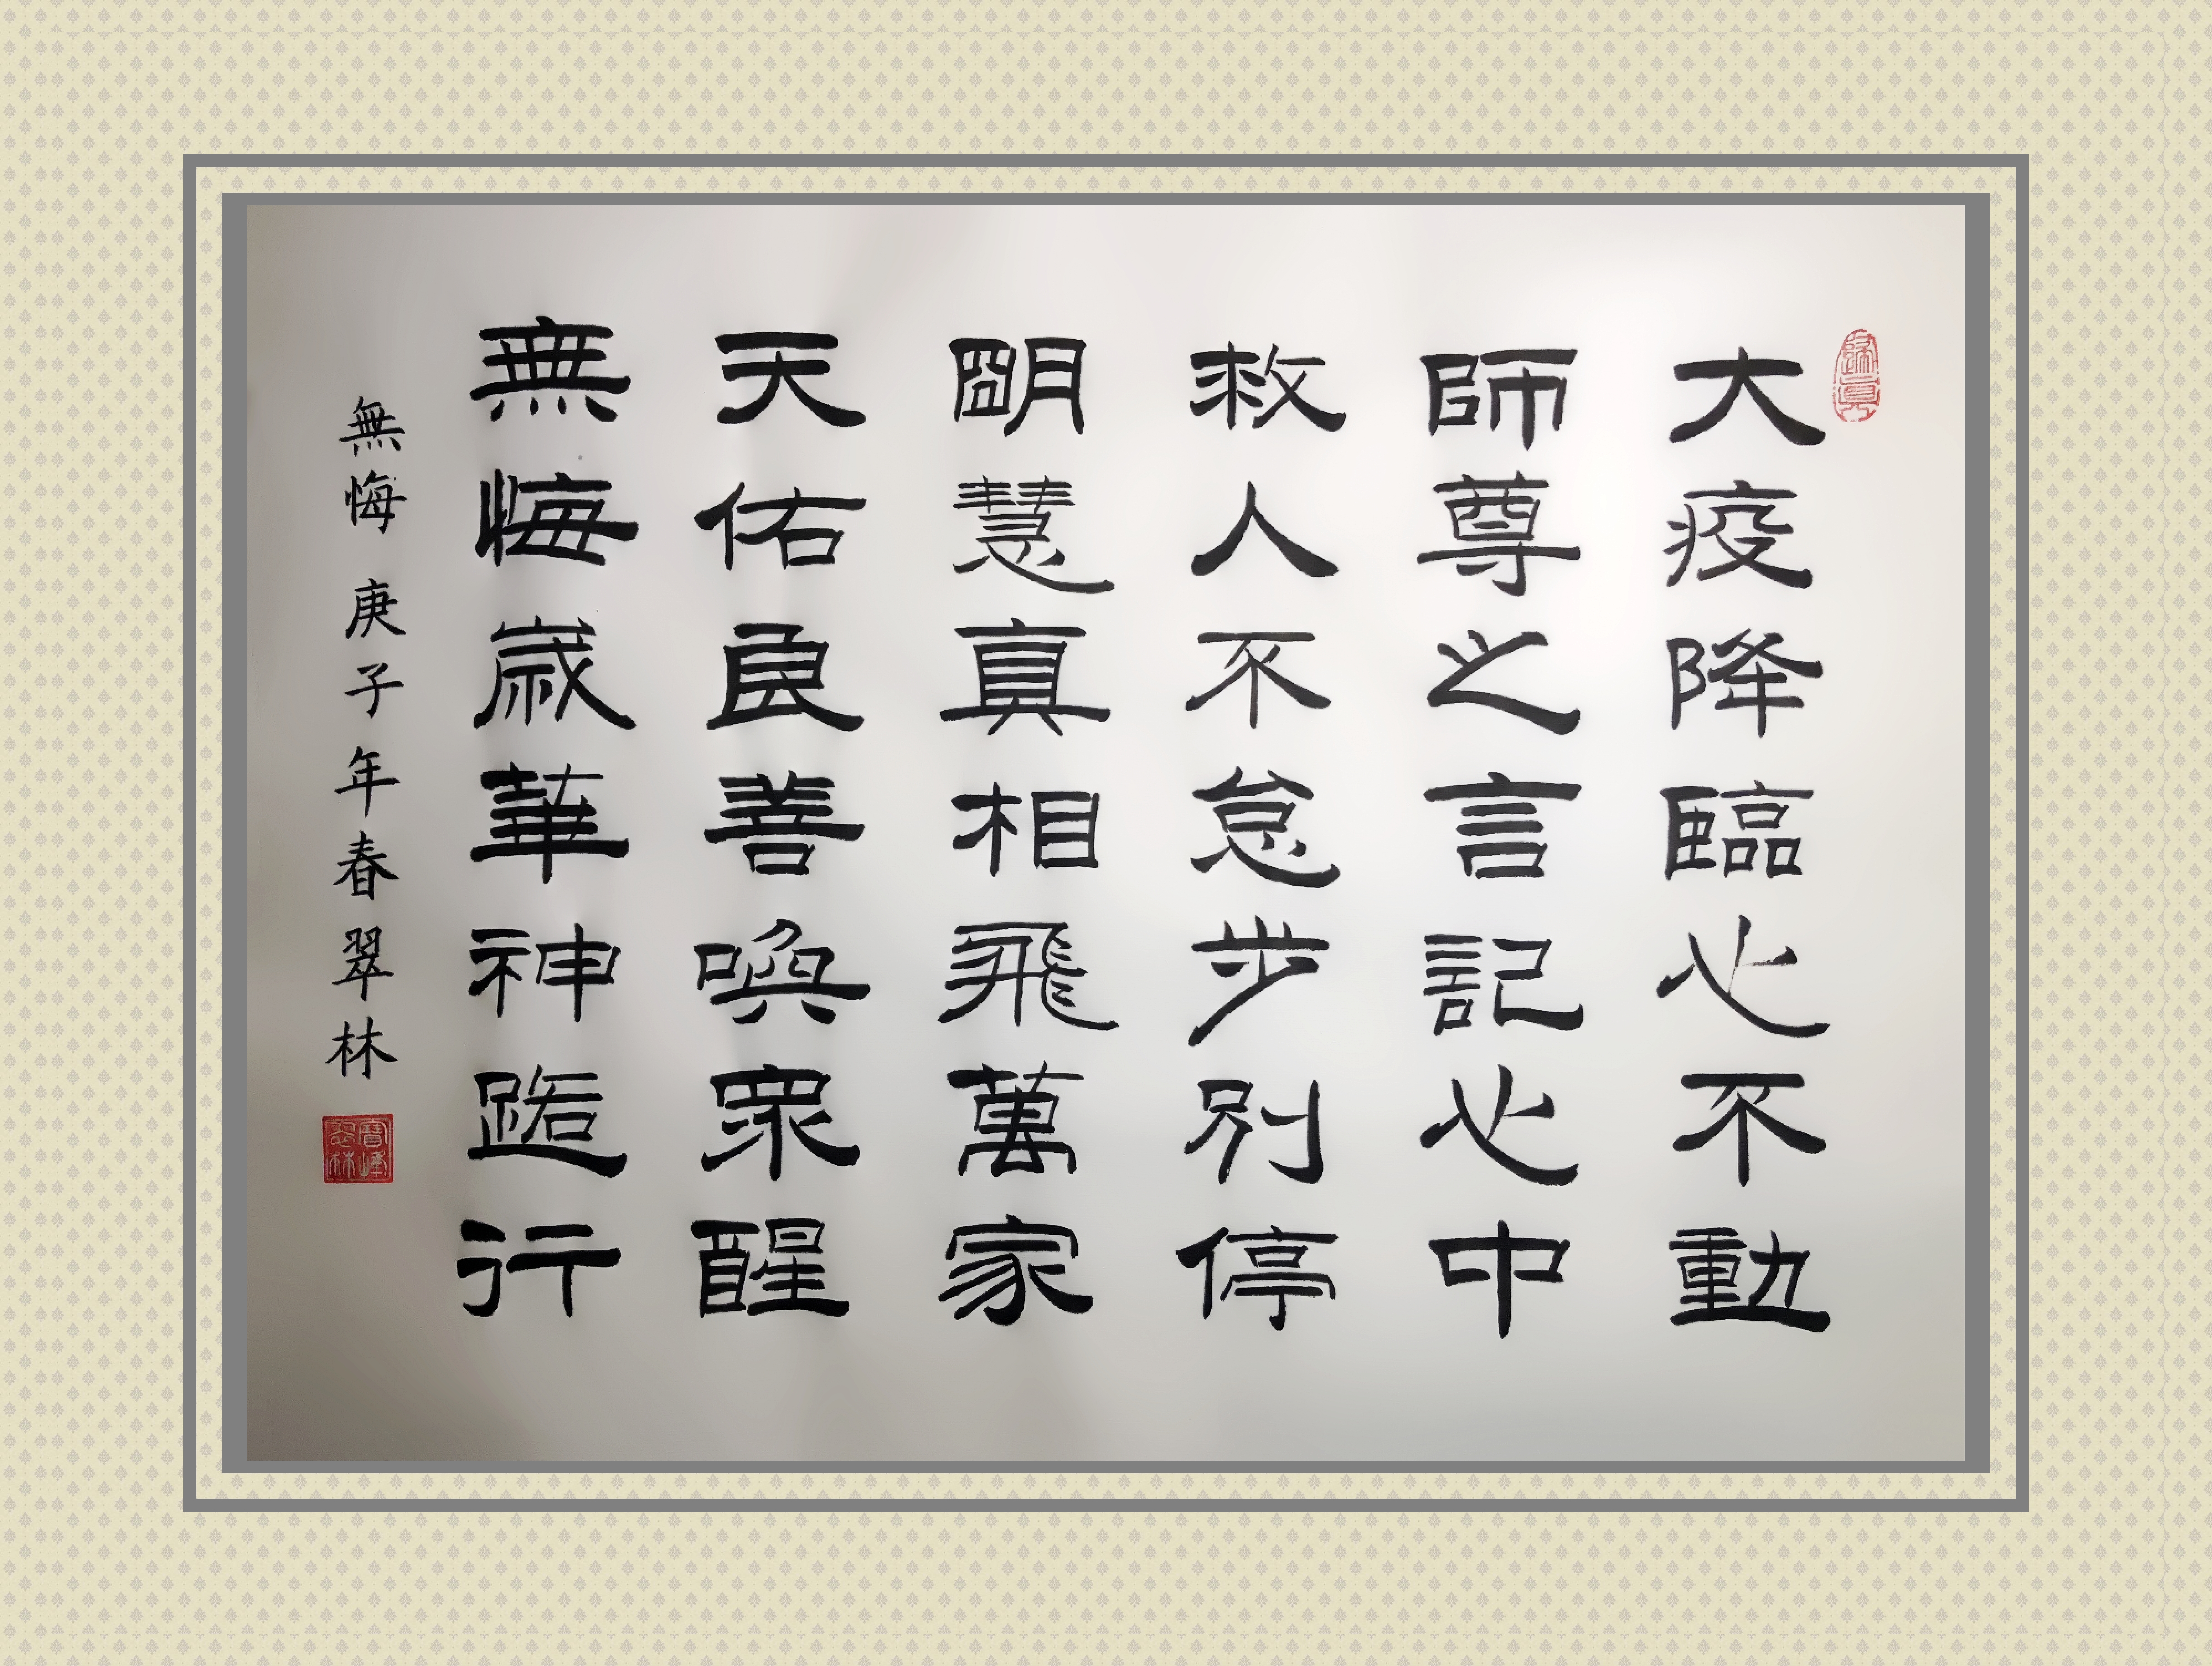 歸真
大疫降臨心不動
師尊之言記心中
救人不怠步別停
朙慧真相飛萬家
天佑良善喚眾醒
無悔歲華神路行
無悔 庚子年春翠林
寶峰翠林